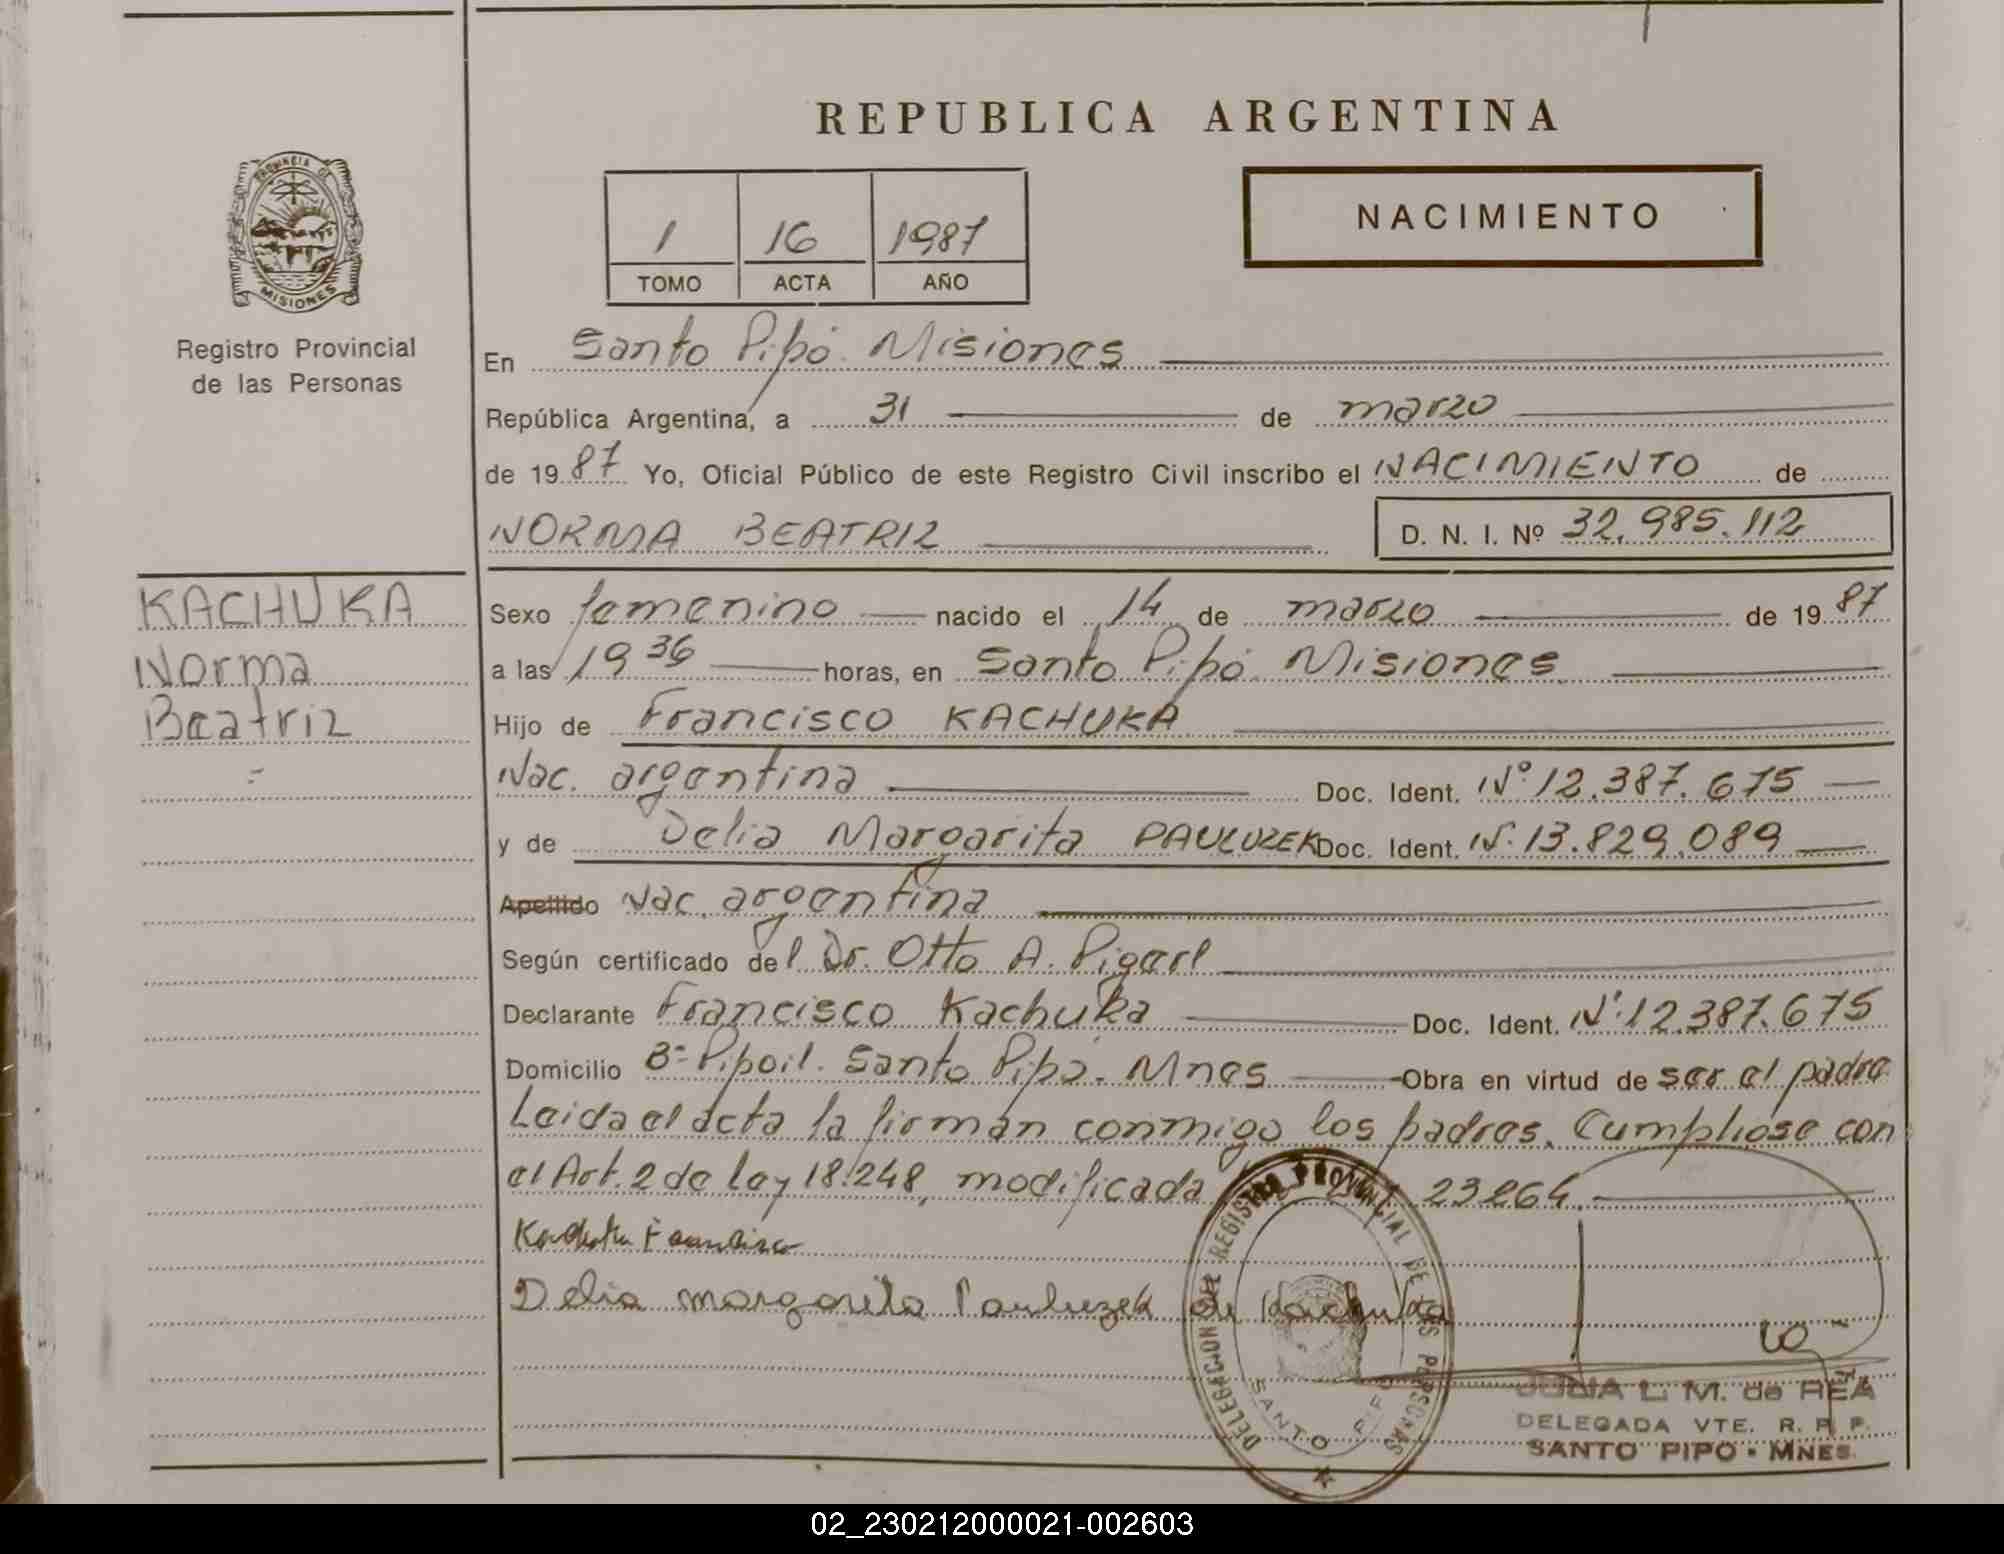 REPUBLICA ARGENTINA
NACIMIENTO
1 16 1987
TOMO ACTA AÑO
PROVINCIA DE
MISIONES
Registro Provincial
de las Personas
En Santo Pipó. Misiones
República Argentina, a 31 de marzo
de 1987 Yo, Oficial Público de este Registro Civil inscribo el NACIMIENTO de
NORMA BEATRIZ D. N. I. Nº 32.985.112
KACHUKA
Norma
Beatriz
Sexo femenino nacido el 14 de marzo de 1987
a las 19 36 horas, en Santo Pipó. Misiones
Hijo de Francisco KACHUKA
Nac. argentina Doc. Ident. Nº 12.387.675
y de Delia Margarita PAULUZEK Doc. Ident. N. 13.829.089
Apellido Nac. argentina
Según certificado del Dr. Otto A.
Declarante Francisco Kachuka Doc. Ident. Nº 12.387.675
Domicilio Bº Santo Pipó. Mnes Obra en virtud de ser el padre
Leida el acta la firman conmigo los padres. Cumpliose con
el Art. 2 de ley 18.248, modificada 23264.
Kachuka Francisco
Delia margarita Pauluzek de Kachuka
DELEGACION DEL REGISTRO PROVINCIAL DE LAS PERSONAS
SANTO PIPO
JULIA L. M. de REA
DELEGADA VTE. R. P. P.
SANTO PIPO - MNES.
02_230212000021-002603